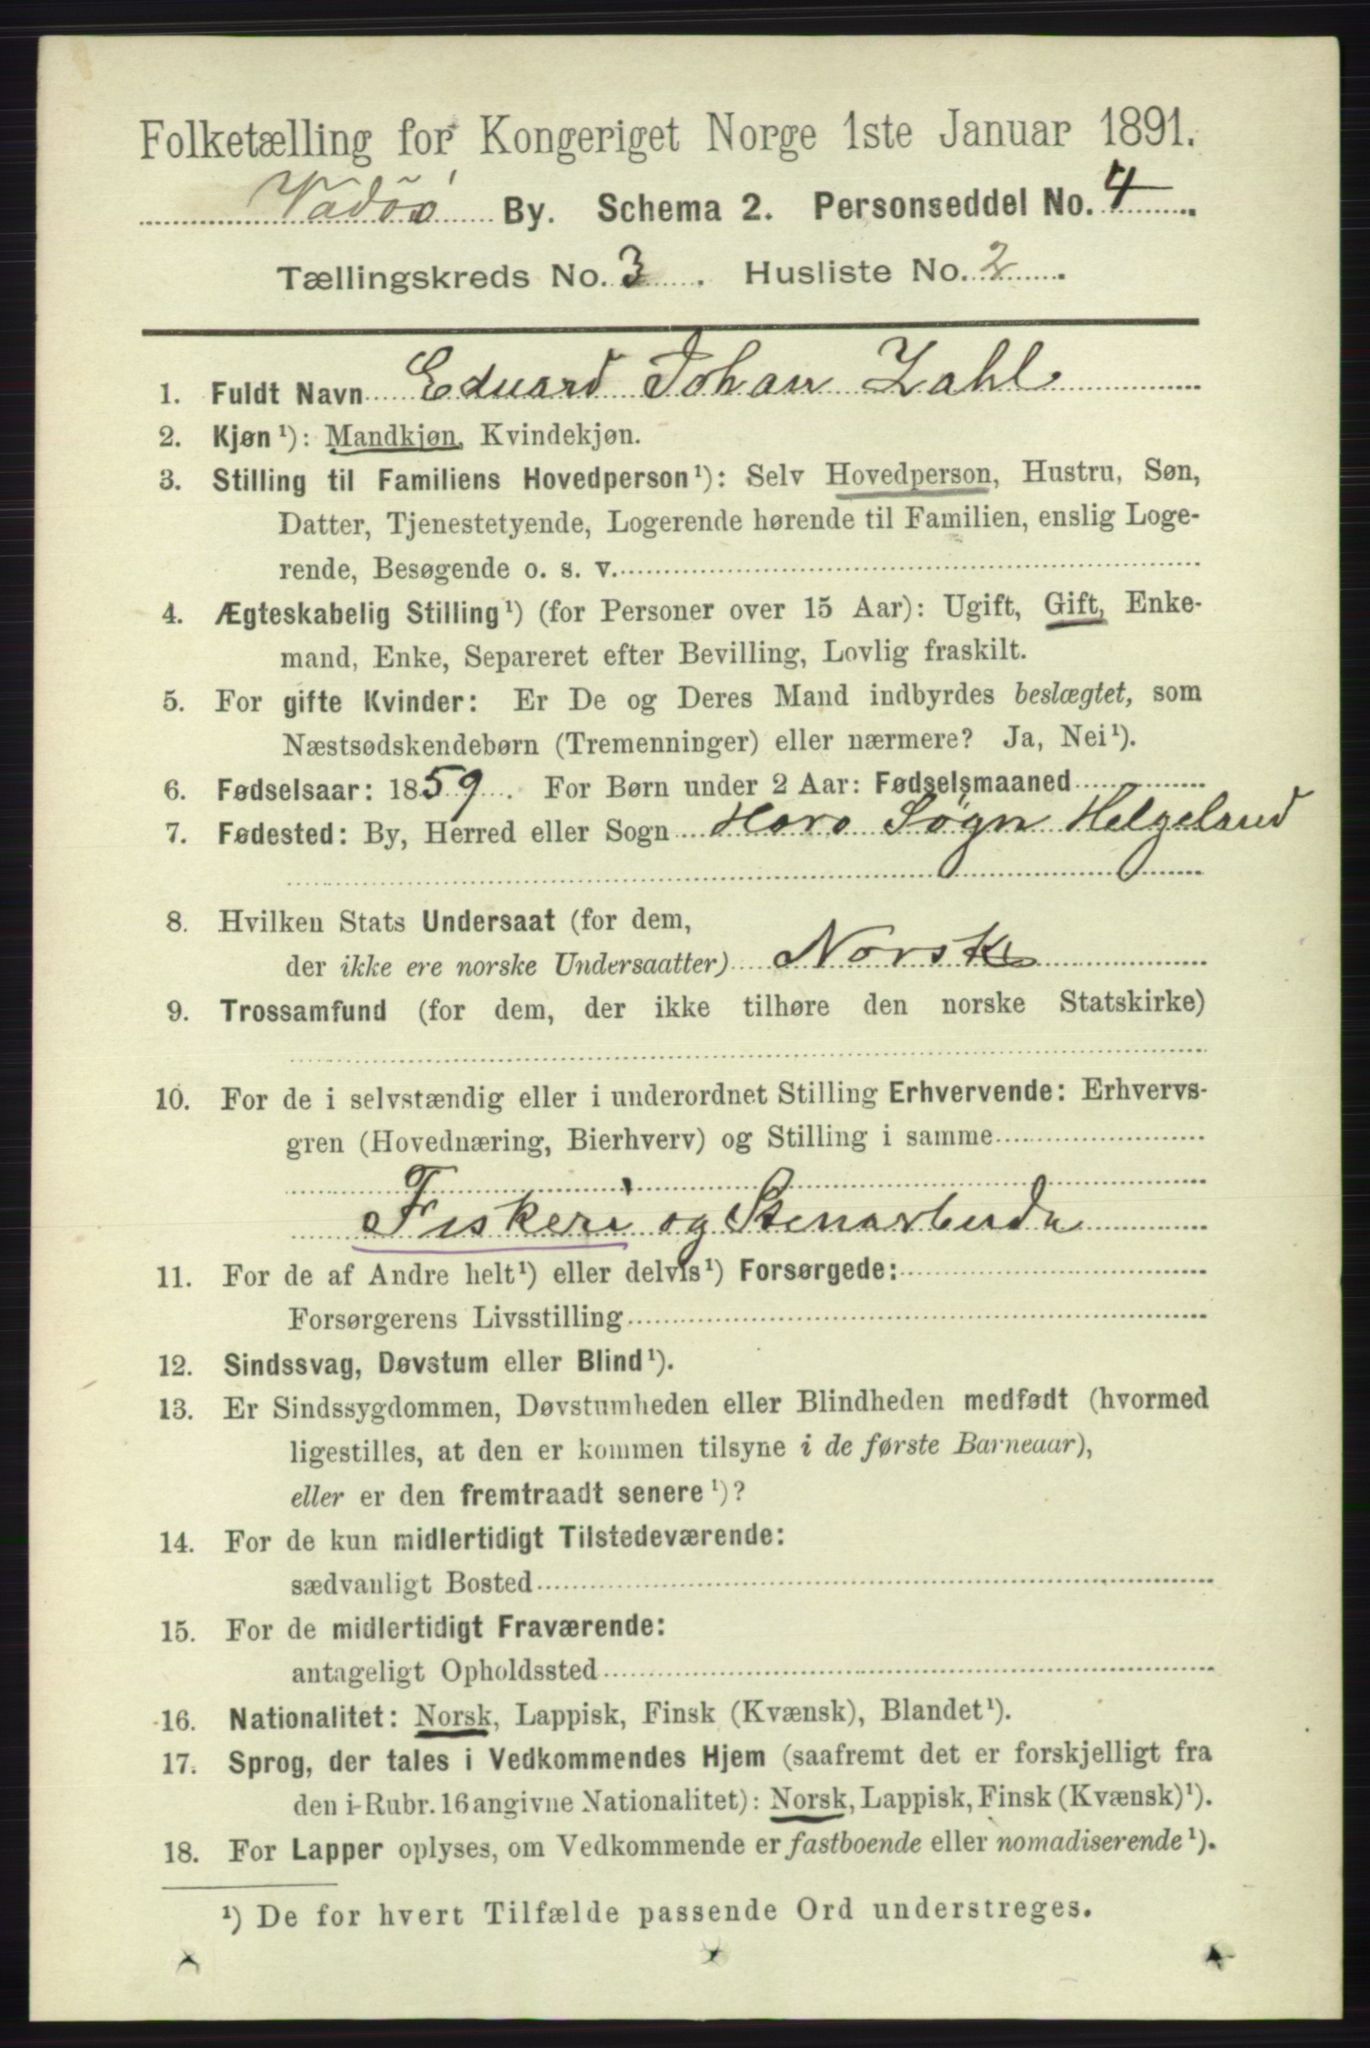 Folketælling for Kongeriget Norge 1ste Januar 1891.
Vadsø By. Schema 2. Personseddel No. 4
Tællingskreds No. 3. Husliste No. 2.
1. Fuldt Navn Eduard Johan Zahl
2. Kjøn¹): Mandkjøn, Kvindekjøn.
3. Stilling til Familiens Hovedperson¹): Selv Hovedperson, Hustru, Søn,
Datter, Tjenestetyende, Logerende hørende til Familien, enslig Loge-
rende, Besøgende o. s. v.
4. Ægteskabelig Stilling¹) (for Personer over 15 Aar): Ugift, Gift, Enke-
mand, Enke, Separeret efter Bevilling, Lovlig fraskilt.
5. For gifte Kvinder: Er De og Deres Mand indbyrdes beslægtet, som
Næstsødskendebørn (Tremenninger) eller nærmere? Ja, Nei¹).
6. Fødselsaar: 1859. For Børn under 2 Aar: Fødselsmaaned
7. Fødested: By, Herred eller Sogn Søgn Helgeland
8. Hvilken Stats Undersaat (for dem,
der ikke ere norske Undersaatter) Norsk
9. Trossamfund (for dem, der ikke tilhøre den norske Statskirke)
10. For de i selvstændig eller i underordnet Stilling Erhvervende: Erhvervs-
gren (Hovednæring, Bierhverv) og Stilling i samme
Fiskeri og Stenarbeide
11. For de af Andre helt¹) eller delvis¹) Forsørgede:
Forsørgerens Livsstilling
12. Sindssvag, Døvstum eller Blind¹).
13. Er Sindssygdommen, Døvstumheden eller Blindheden medfødt (hvormed
ligestilles, at den er kommen tilsyne i de første Barneaar),
eller er den fremtraadt senere¹)?
14. For de kun midlertidigt Tilstedeværende:
sædvanligt Bosted
15. For de midlertidigt Fraværende:
antageligt Opholdssted
16. Nationalitet: Norsk, Lappisk, Finsk (Kvænsk), Blandet¹).
17. Sprog, der tales i Vedkommendes Hjem (saafremt det er forskjelligt fra
den i Rubr. 16 angivne Nationalitet): Norsk, Lappisk, Finsk (Kvænsk)¹).
18. For Lapper oplyses, om Vedkommende er fastboende eller nomadiserende¹).
¹) De for hvert Tilfælde passende Ord understreges.